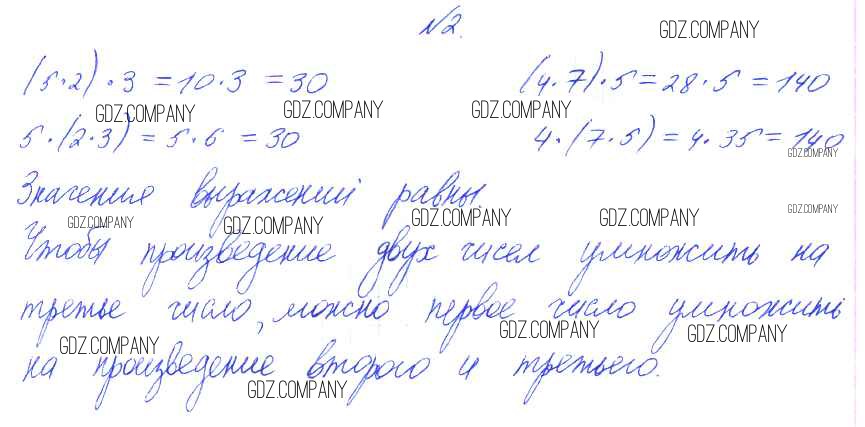 №2.
GDZ.COMPANY
(5·2)·3=10·3=30 (4·7)·5=28·5=140
GDZ.COMPANY GDZ.COMPANY GDZ.COMPANY
5·(2·3)=5·6=30 4·(7·5)=4·35=140
GDZ.COMPANY
Значения выражений равны.
GDZ.COMPANY GDZ.COMPANY GDZ.COMPANY GDZ.COMPANY GDZ.COMPANY
Чтобы произведение двух чисел умножить на
третье число, можно первое число умножить
GDZ.COMPANY GDZ.COMPANY GDZ.COMPANY
на произведение второго и третьего.
GDZ.COMPANY